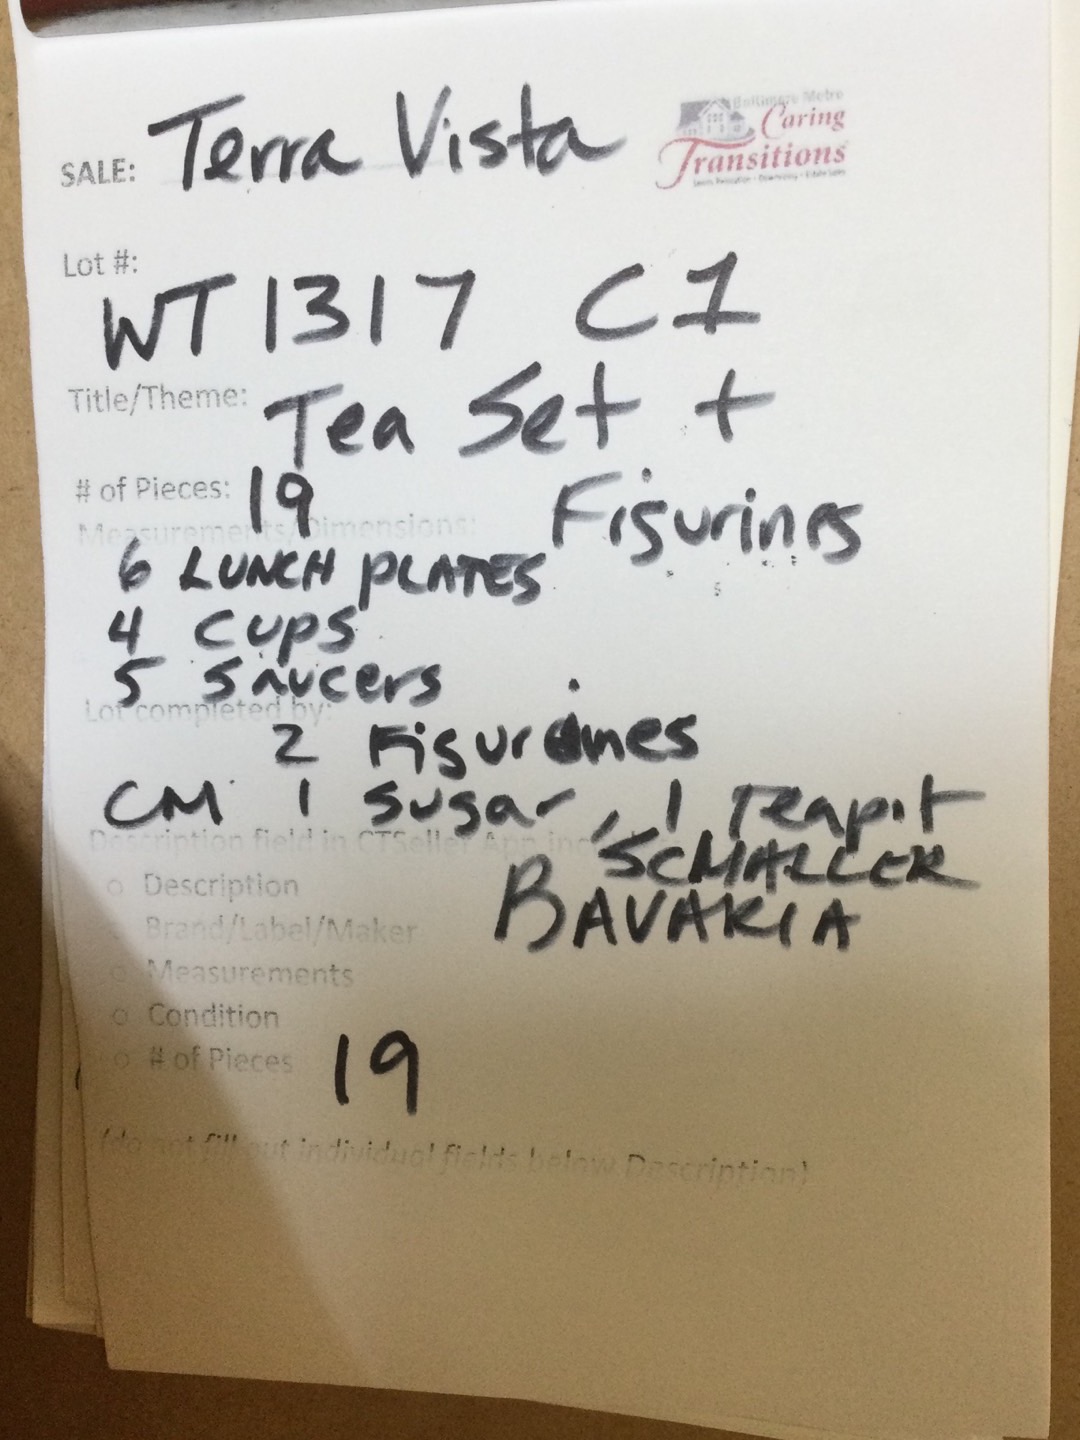 Baltimore Metro
Caring
Transitions
SALE: Terra Vista
Lot #:
WT 1317 C1
Title/Theme: Tea Set +
# of Pieces: 19 Figurines
Measurements/Dimensions:
6 LUNCH PLATES
4 Cups
5 Saucers
Lot completed by:
2 Figurines
CM 1 Sugar, 1 Teapot
Description field in CTSeller App
SCMALLER
BAVARIA
Description
Brand/Label/Maker
Measurements
Condition
# of Pieces 19
(do not fill out individual fields below Description)